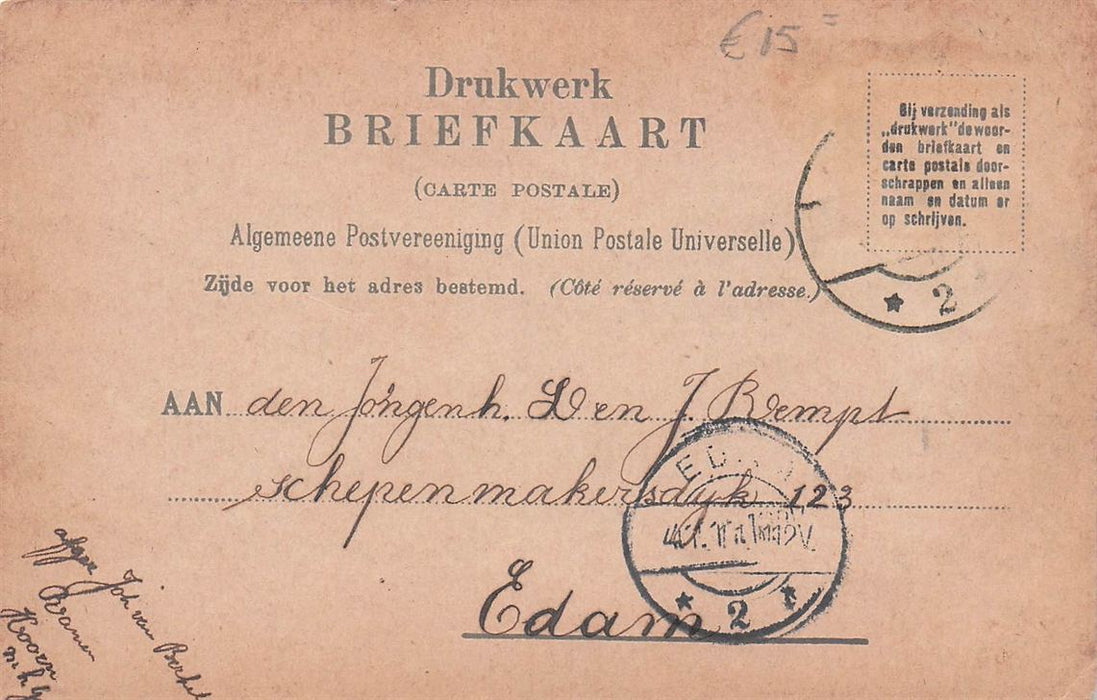 € 15 =
Drukwerk
BRIEFKAART
(CARTE POSTALE)
Algemeene Postvereeniging (Union Postale Universelle)
Zijde voor het adres bestemd. (Côté réservé à l'adresse.)
Bij verzending als
„drukwerk" de woor-
den briefkaart en
carte postale door-
schrappen en alleen
naam en datum er
op schrijven.
2
AAN den Jongenh. en J. Bempt
schepenmakersdyk 123
Edam
EDAM
12V.
2
afzgr Joh van
Hoorn